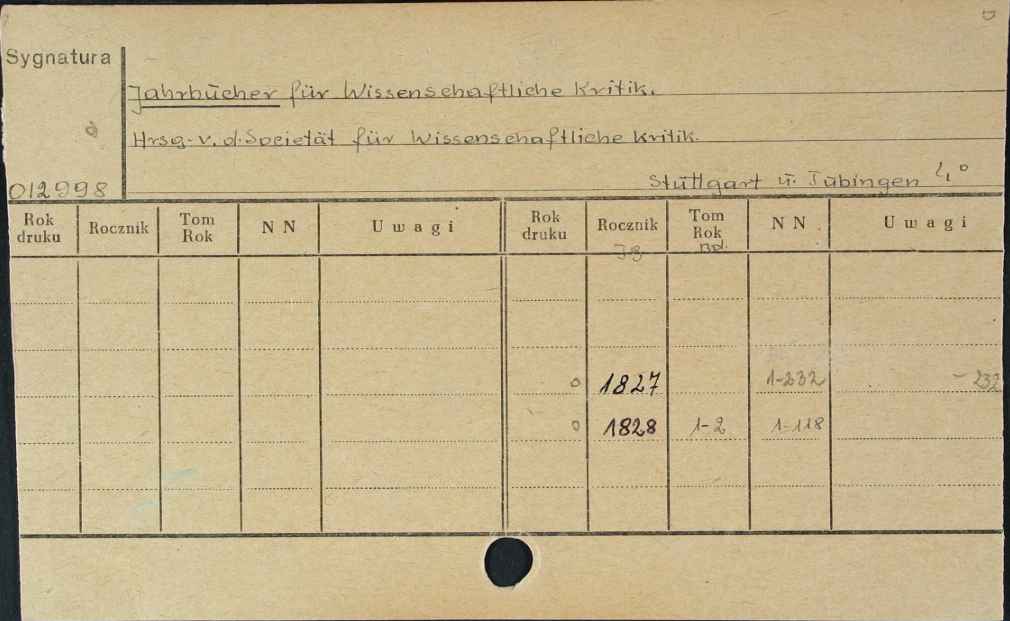 Sygnatura
Jahrbücher für Wissenschaftliche Kritik.
Hrsg. v. d. Societät für Wissenschaftliche Kritik.
012998
Stuttgart u. Tübingen 4°
Rok druku Rocznik Tom Rok N N Uwagi Rok druku Rocznik Tom Rok N N Uwagi
JB Bd.
1827 1-232 - 232
1828 1-2 1-118